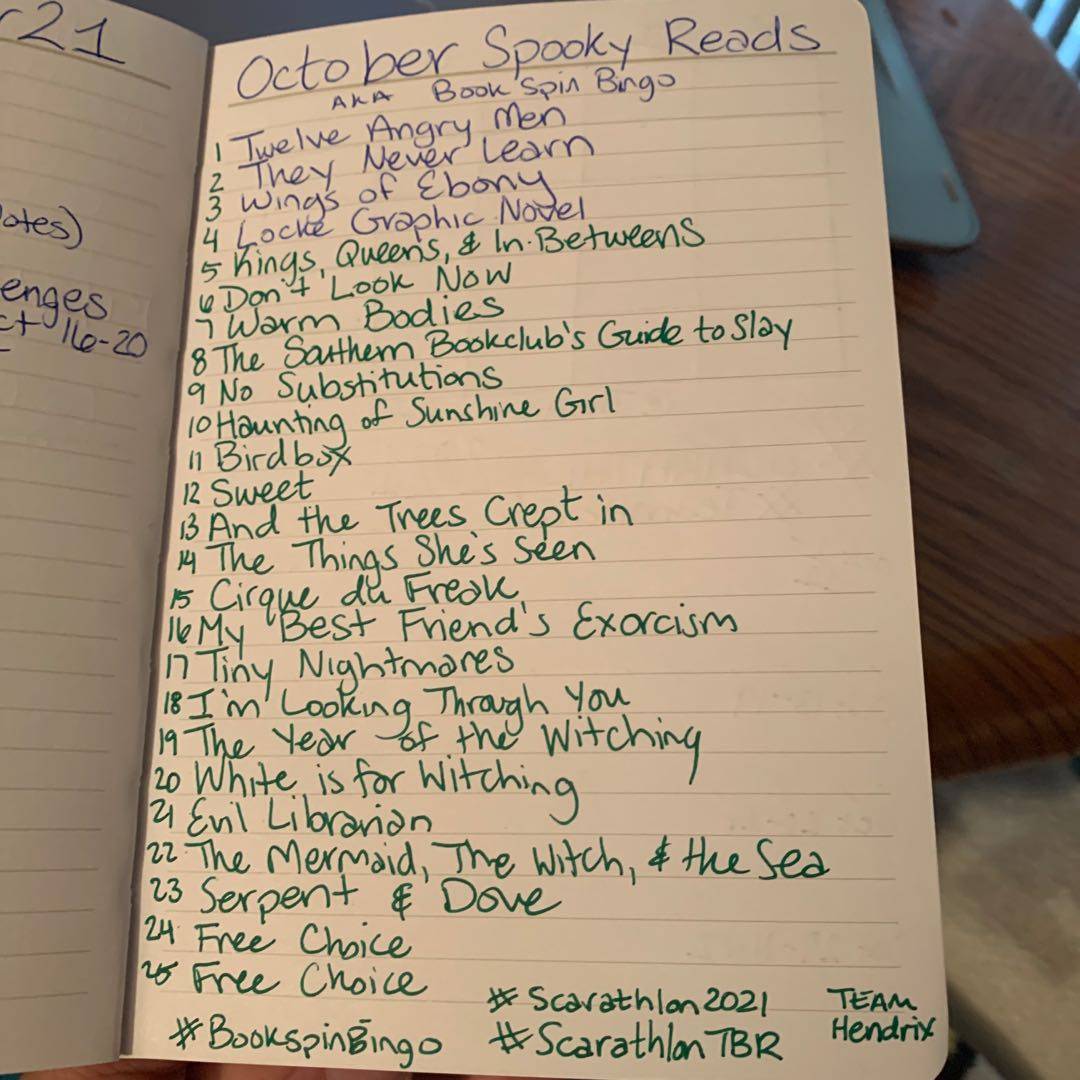 r21
otes)
enges
ct 16-20
October Spooky Reads
AKA Book Spin Bingo
1 Twelve Angry Men
2 They Never Learn
3 Wings of Ebony
4 Locke Graphic Novel
5 Kings, Queens, & In-Betweens
6 Don't Look Now
7 Warm Bodies
8 The Southern Bookclub's Guide to Slay
9 No Substitutions
10 Haunting of Sunshine Girl
11 Birdbox
12 Sweet
13 And the Trees Crept in
14 The Things She's Seen
15 Cirque du Freak
16 My Best Friend's Exorcism
17 Tiny Nightmares
18 I'm Looking Through You
19 The Year of the Witching
20 White is for Witching
21 Evil Librarian
22 The Mermaid, The Witch, & the Sea
23 Serpent & Dove
24 Free Choice
25 Free Choice
#Scarathlon2021 TEAM
#BookspinBingo #ScarathlonTBR Hendrix